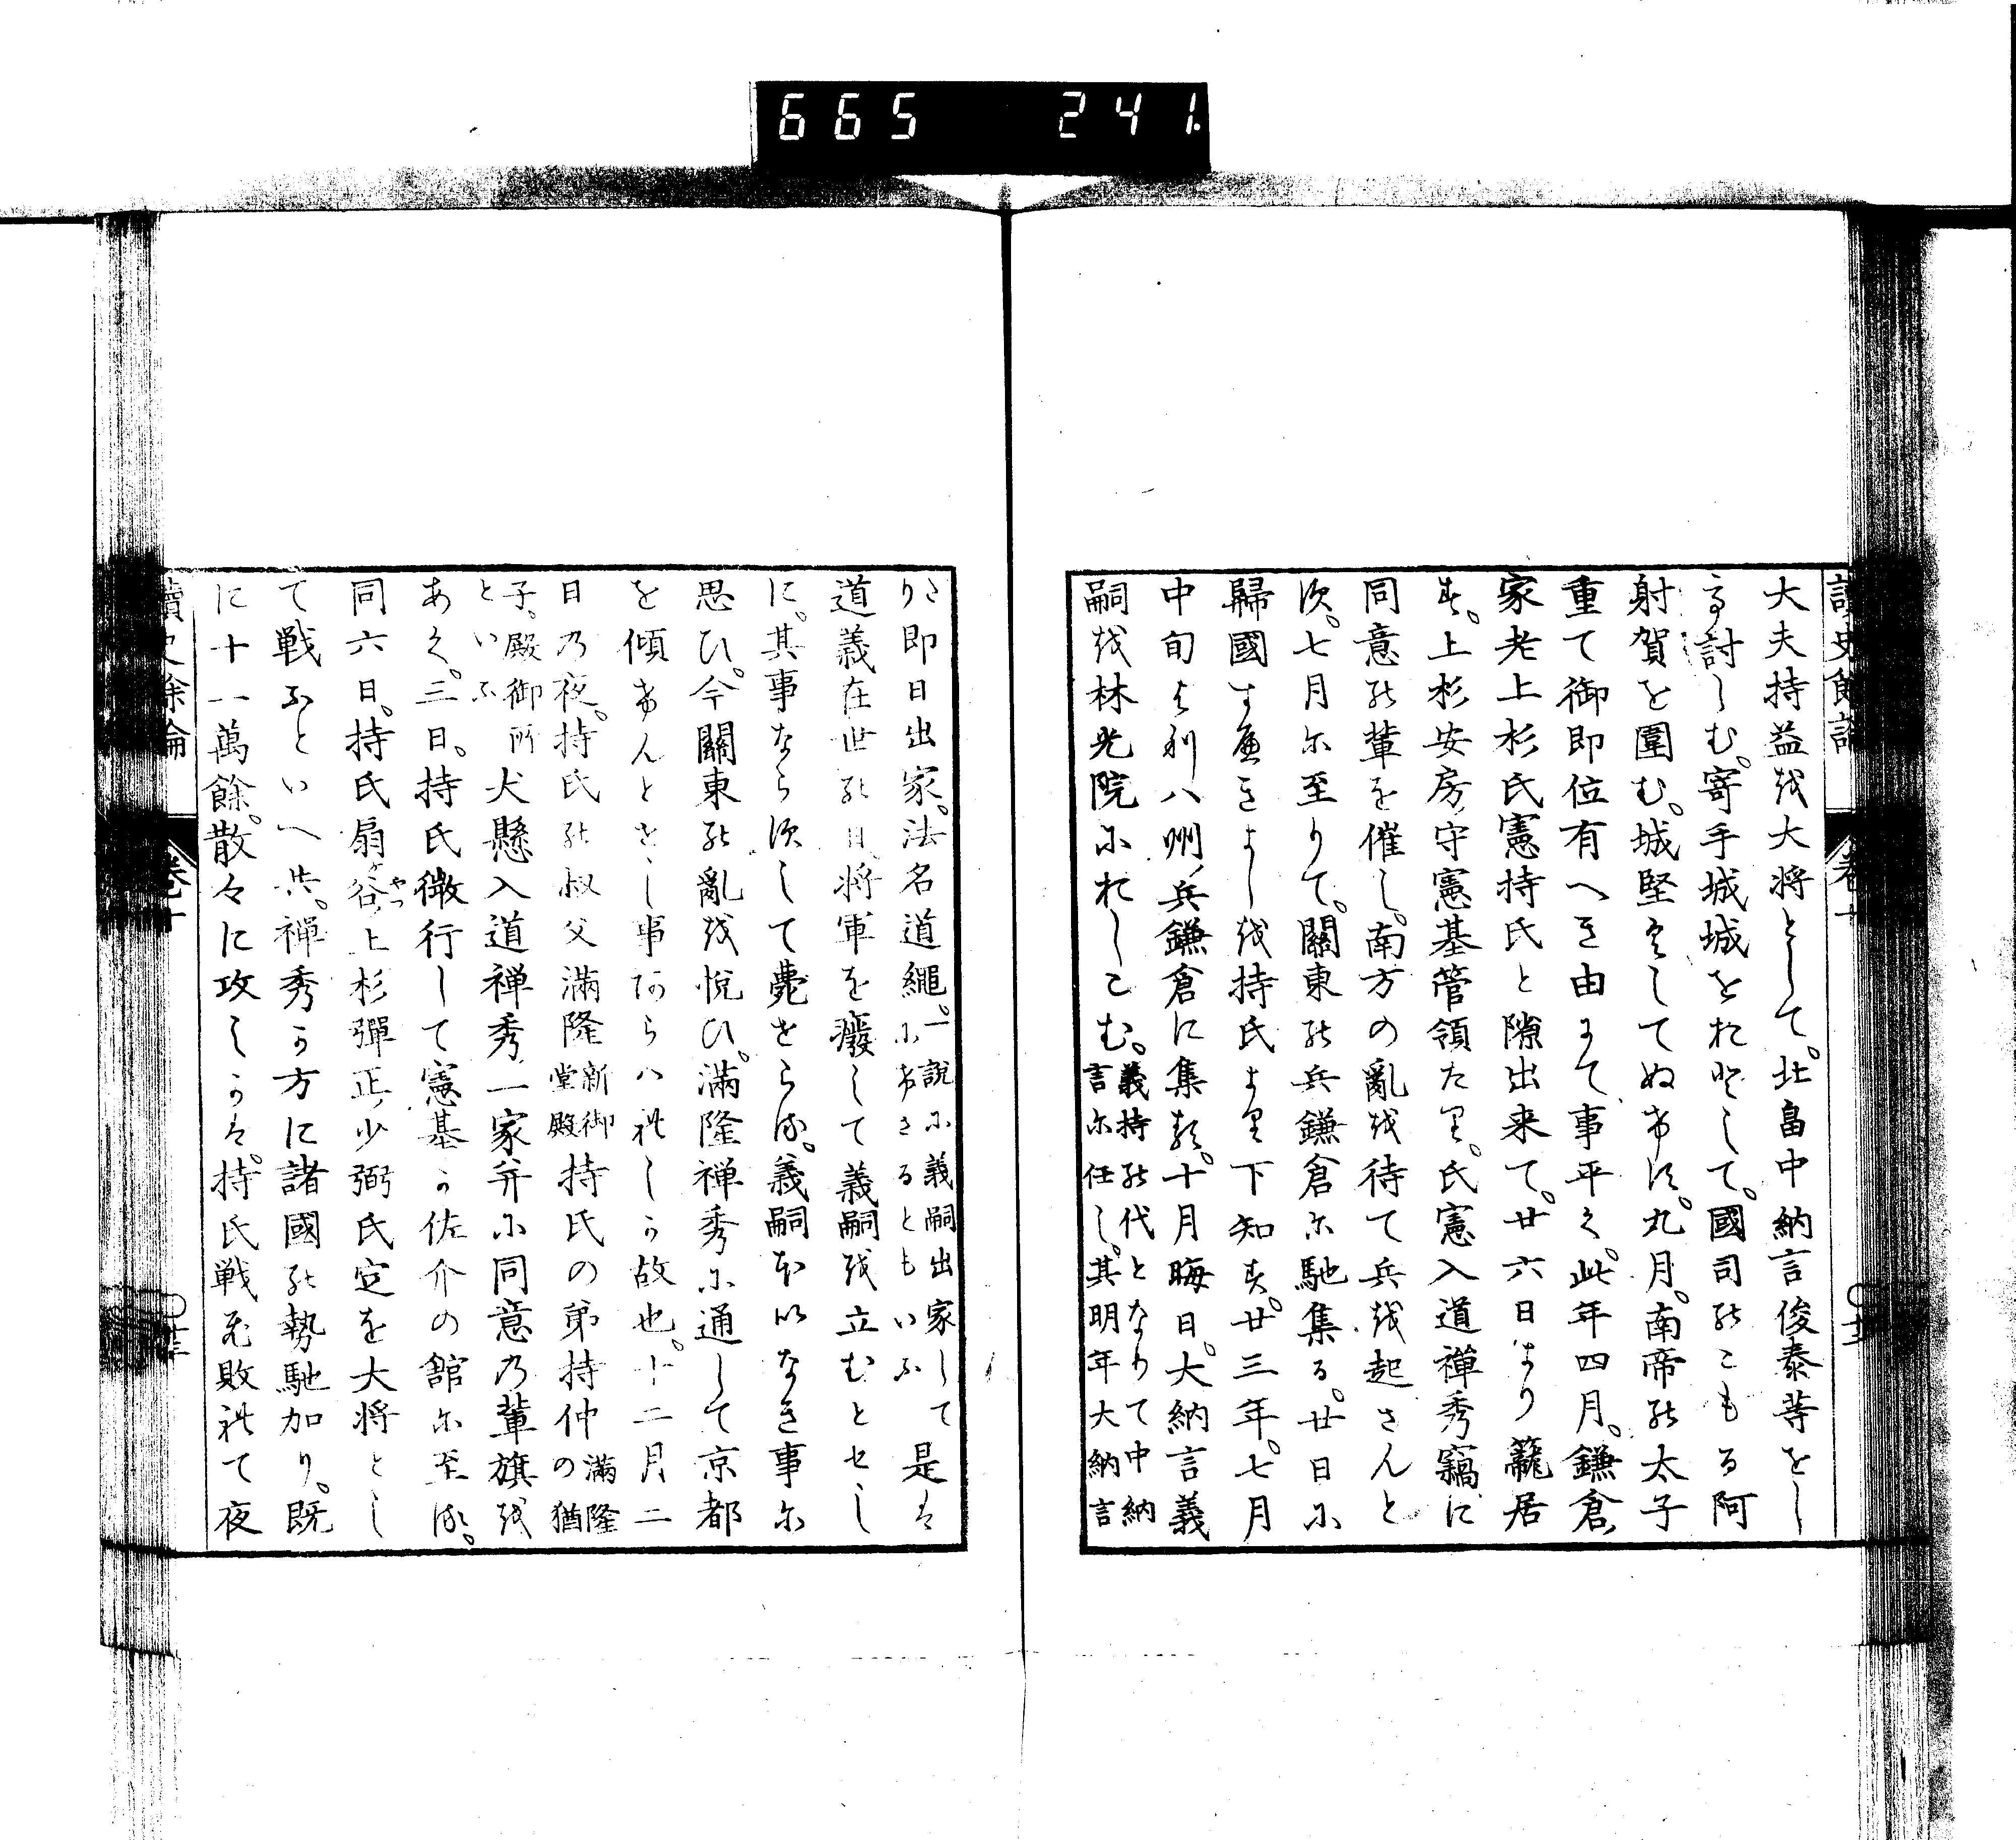 665 241
大夫持益越大将として。北畠中納言俊泰等をし
て討しむ。寄手城城をおとして。國司能こもる阿
射賀を圍む。城堅くしてぬけす。九月。南帝能太子
重て御即位有へき由にて事平く。此年四月。鎌倉ノ
家老上杉氏憲持氏と隙出来て。廿六日より籠居
す。上杉安房ノ守憲基管領たり。氏憲入道禅秀竊に
同意能輩を催し。南方の亂越待て兵越起さんと
す。七月尓至りて。關東能兵鎌倉尓馳集る。廿日尓
歸國すへきよし越持氏より下知す。廿三年。七月
中旬より八州ノ兵鎌倉に集る。十月晦日。大納言義
嗣越林光院尓おしこむ。義持能代となりて中納
言尓任し。其明年大納言
り即日出家。法名道繩。一説尓義嗣出家して
尓けさるともいふ是は
道義在世能日。将軍を癈して義嗣越立むとせし
に。其事ならすして薨せらる。義嗣本いなき事尓
思ひ。今關東能亂越悦ひ。滿隆禅秀尓通して京都
を傾けんとせし事あらハれしか故也。十二月二
日乃夜。持氏能叔父滿隆新御
堂殿持氏の弟持仲滿隆
の猶
子。殿御所
といふ犬懸入道禅秀ノ一家并尓同意乃輩旗越
あく。三日。持氏微行して憲基か佐介の舘尓至る。
同六日。持氏扇ヶ谷ノ上杉彈正ノ少弼氏定を大将とし
て戦ふといへ共。禅秀か方に諸國能勢馳加り。既
に十一萬餘。散々に攻しかは。持氏戦ひ敗れて夜